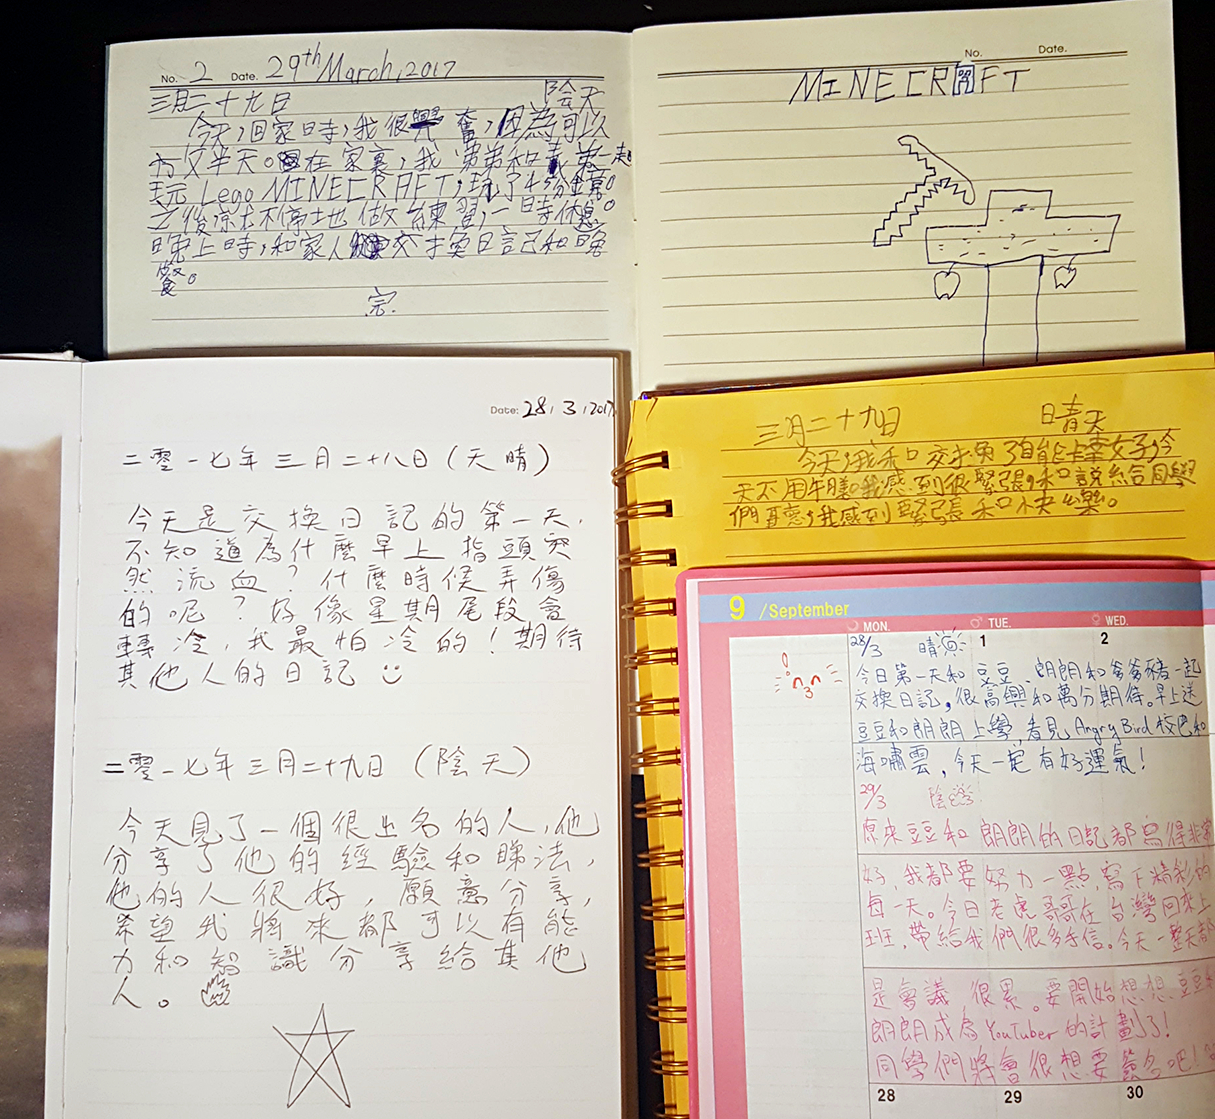 No. 2 Date. 29th March, 2017
三月二十九日 陰天
今天,回家時,我很興奮,因為可以
放半天。在家裏,我
玩 Lego MINECRAFT,玩了45分鐘。
之後 不停地做 練習,一時休息。
晚上時,和家人 交換日記和晚
餐。
完.
No. Date.
MINECRAFT
Date: 28, 3, 2017
二零一七年三月二十八日(天晴)
今天是交換日記的第一天,
不知道為什麼早上指頭突
然流血?什麼時候弄傷
的呢?好像星期尾段會
轉冷,我最怕冷的!期待
其他人的日記
二零一七年三月二十九日 (陰天)
今天見了一個很出名的人,他
分享了他的經驗和睇法,
他的人很好,願意分享,
希望我將來都可以有能
力和知識分享給其他
人。
三月二十九日 晴天
今天,我和 交換了 今
天不用 我感到很緊張,和說給同學
們再聽,我感到緊張和快樂。
9 /September
MON. TUE. WED.
28/3 晴 1 2
今日第一天和豆豆、朗朗和爹爹豬一起
交換日記,很高興和萬分期待。早上送
豆豆和朗朗上學,看見 Angry Bird 校巴和
海嘯雲,今天一定有好運氣!
29/3 陰
原來豆豆和朗朗的日記都寫得非常
好,我都要努力一點,寫下精彩的
每一天。今日老虎哥哥在台灣回來上
班,帶給我們很多手信。今天一整天都
是會議,很累。要開始想想豆豆和
朗朗成為 YouTuber 的計劃了!
同學們將會很想要簽名吧!
28 29 30